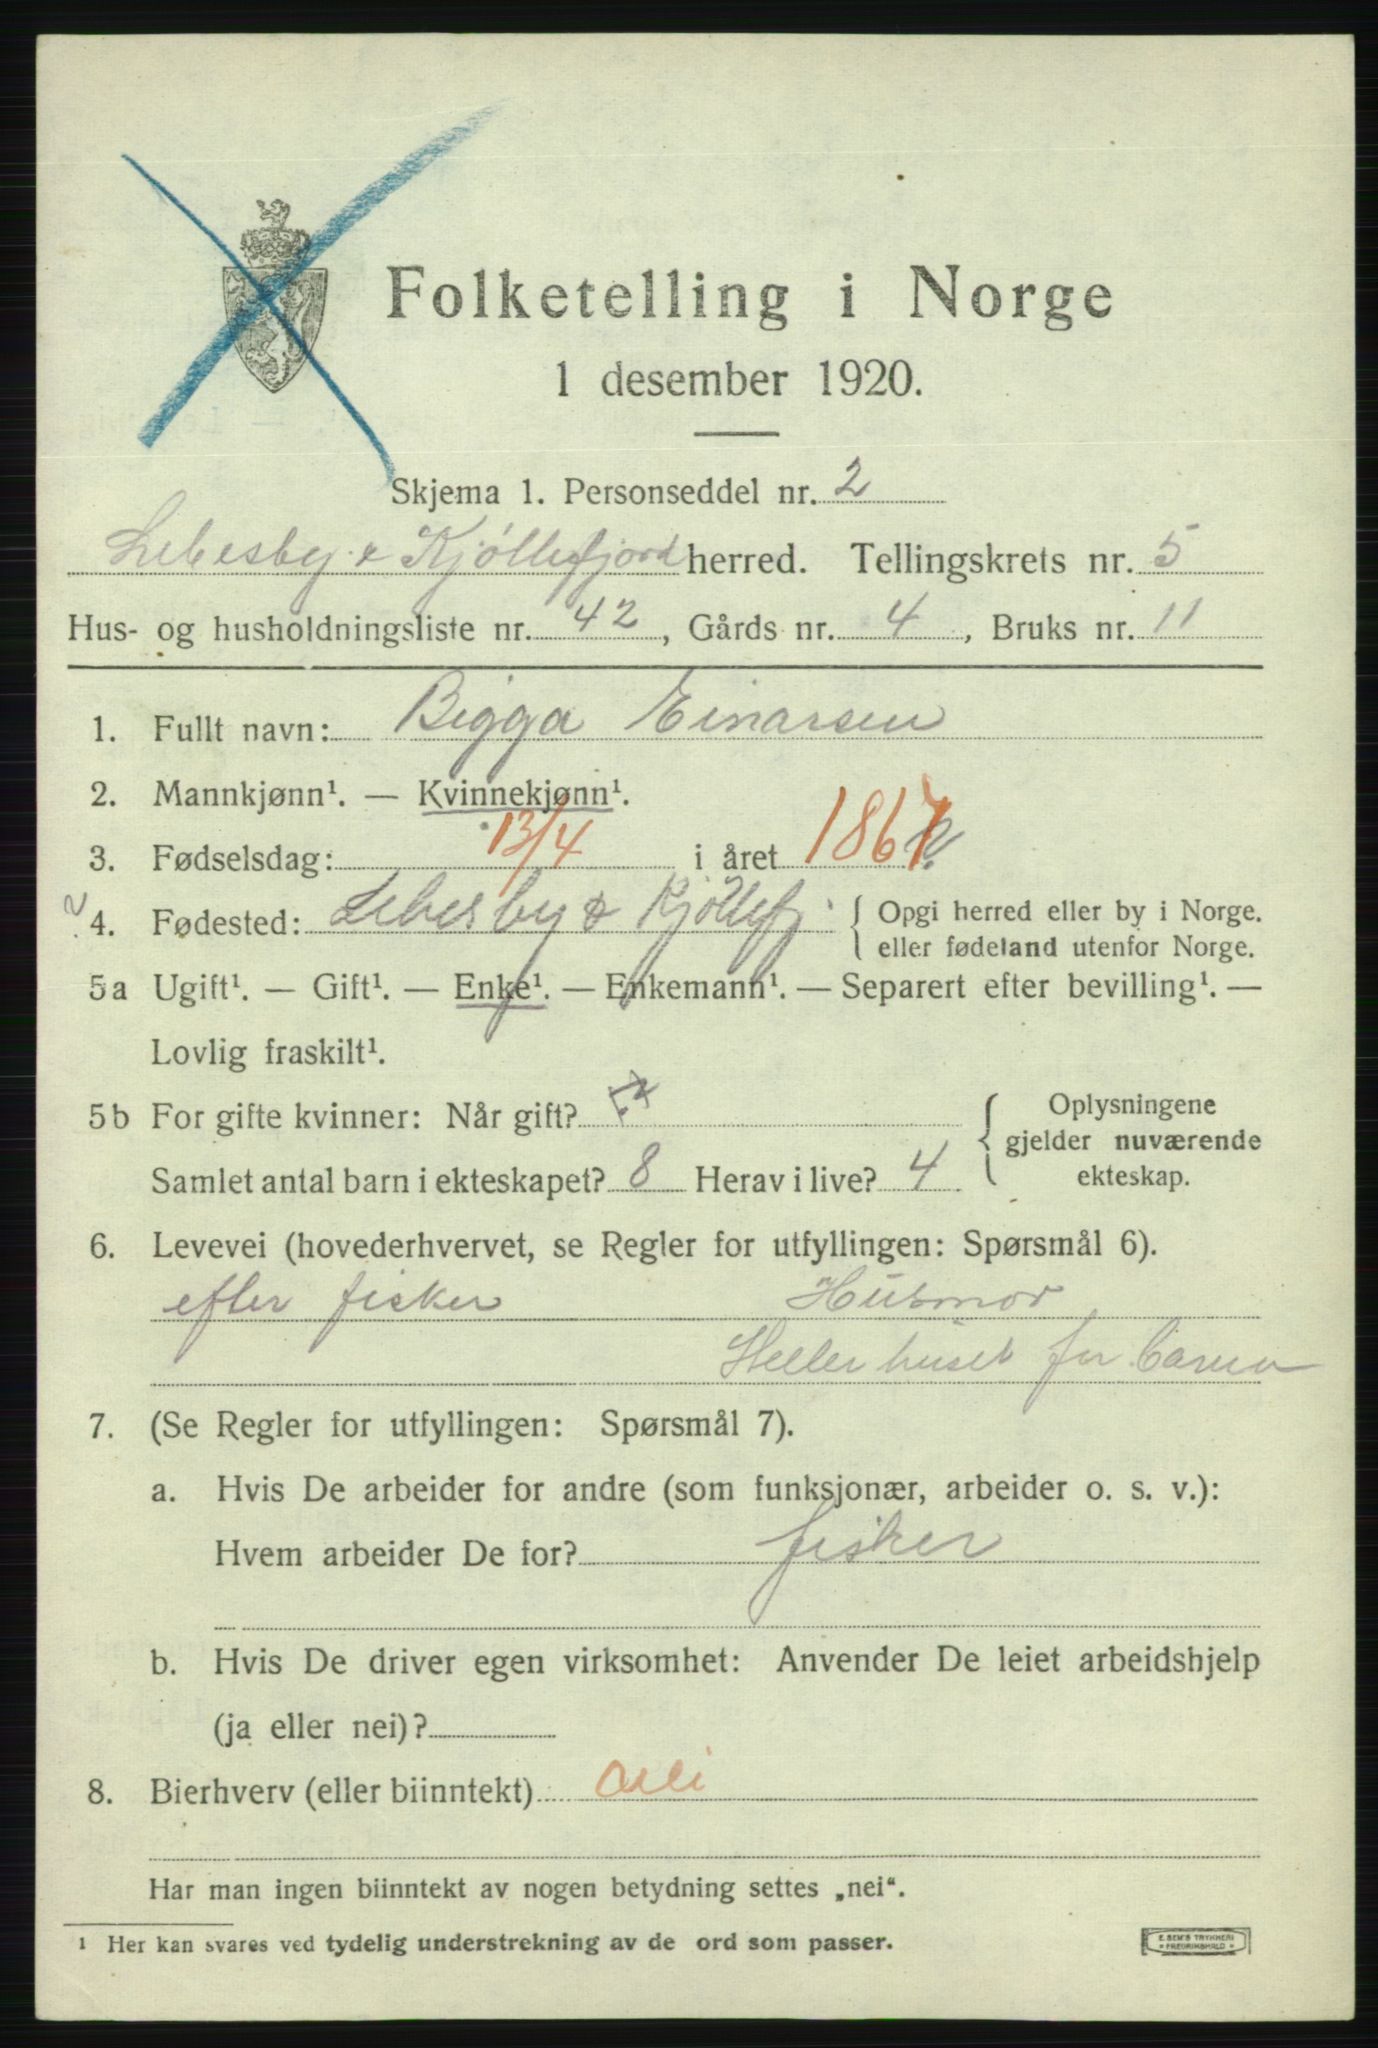 Folketelling i Norge
1 desember 1920.
Skjema 1. Personseddel nr. 2
Lebesby & Kjöllefjord herred. Tellingskrets nr. 5
Hus- og husholdningsliste nr. 42, Gårds nr. 4, Bruks nr. 11
1. Fullt navn: Bigga Einarsen
2. Mannkjønn¹. — Kvinnekjønn¹.
3. Fødselsdag: 13/4 i året 1867
4. Fødested: Lebesby & Kjöllefj. { Opgi herred eller by i Norge.
eller fødeland utenfor Norge.
5a Ugift¹. — Gift¹. — Enke¹. — Enkemann¹. — Separert efter bevilling¹. —
Lovlig fraskilt¹.
5b For gifte kvinner: Når gift?
Samlet antal barn i ekteskapet? 8 Herav i live? 4
{ Oplysningene
gjelder nuværende
ekteskap.
6. Levevei (hovederhvervet, se Regler for utfyllingen: Spørsmål 6).
efter fisker Husmor
Steller huset for
7. (Se Regler for utfyllingen: Spørsmål 7).
a. Hvis De arbeider for andre (som funksjonær, arbeider o. s. v.):
Hvem arbeider De for? fisker
b. Hvis De driver egen virksomhet: Anvender De leiet arbeidshjelp
(ja eller nei)?
8. Bierhverv (eller biinntekt)
Har man ingen biinntekt av nogen betydning settes „nei“.
¹ Her kan svares ved tydelig understrekning av de ord som passer.
E. SEM'S TRYKKERI
FREDRIKSHALD